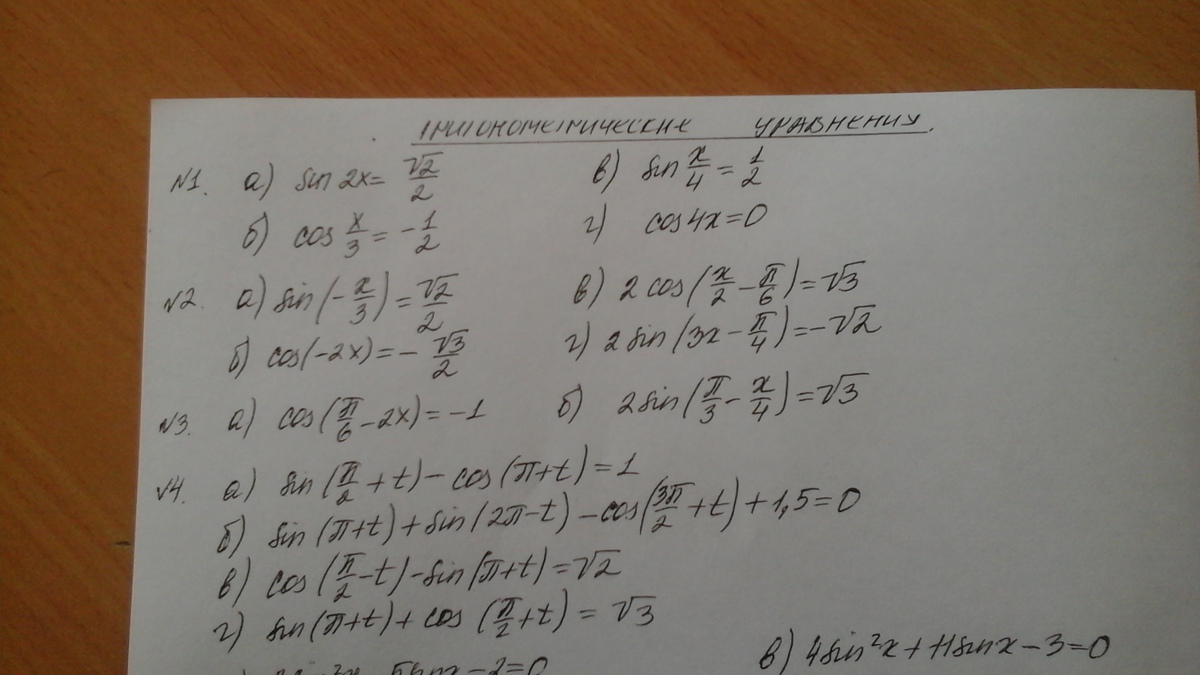 ТРИГОНОМЕТРИЧЕСКИЕ УРАВНЕНИЯ.
№1. а) sin 2x = √2/2 в) sin x/4 = 1/2
б) cos x/3 = -1/2 г) cos 4x = 0
№2. а) sin(-x/3) = √2/2 в) 2 cos(x/2 - π/6) = √3
б) cos(-2x) = -√3/2 г) 2 sin(3x - π/4) = -√2
№3. а) cos(π/6 - 2x) = -1 б) 2 sin(π/3 - x/4) = √3
№4. а) sin(π/2 + t) - cos(π + t) = 1
б) sin(π + t) + sin(2π - t) - cos(3π/2 + t) + 1,5 = 0
в) cos(π/2 - t) - sin(π + t) = √2
г) sin(π + t) + cos(π/2 + t) = √3
в) 4 sin²x + 11 sin x - 3 = 0